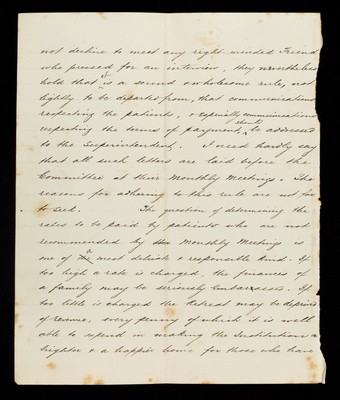 not decline to meet any right minded Friend
who pressed for an interview, they nevertheless
hold that it is a sound & wholesome rule, not
lightly to be departed from, that communications
respecting the patients, & especially communications
respecting the terms of payment, should be addressed
to the Superintendent. I need hardly say
that all such letters are laid before the
Committee at their Monthly Meetings. The
reasons for adhering to this rule are not far
to seek. The question of determining the
rates to be paid by patients who are not
recommended by their Monthly Meetings is
one of the most delicate & responsible kind. If
too high a rate is charged, the finances of
a family may be seriously embarrassed. If
too little is charged the Retreat may be deprived
of revenue, every penny of which it is well
able to spend in making the Institution a
brighter & a happier home for those who have